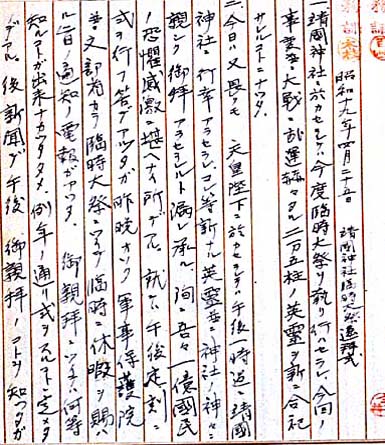 昭和十九年四月二十五日 靖國神社臨時大祭遙拜式
一、靖國神社ニ於カセラレテハ今度臨時大祭ヲ執リ行ハセラレ、今回ノ
事変並ニ大戦ニ 二万五柱ノ英靈ヲ新ニ合祀
サレルコトニナツタ。
二、今日ハ又畏クモ 天皇陛下ニ於カセラレテハ午後一時過ニ靖國
神社ニ行幸アラセラレ、コレ等新ナル英靈並ニ神社ノ神々ニ
親シク御拜アラセラルルト漏レ承ル、洵ニ吾々一億國民
ノ恐懼感激ニ堪ヘナイ所デアル。就テハ午後 定刻ニ
式ヲ行フ筈デアツタガ昨晩オソク軍事保護院
並文部省カラ臨時大祭ニツイテ臨時ニ休暇ヲ賜ハ
ル旨ノ通知ノ電報ガアツタ。 御親拜ニツイテハ何等
知ルコトガ出来ナカツタタメ、例年ノ通リ式ヲスルコトニ定メタ
デアル。後新聞デ午後 御親拜ノコトヲ知ツタガ